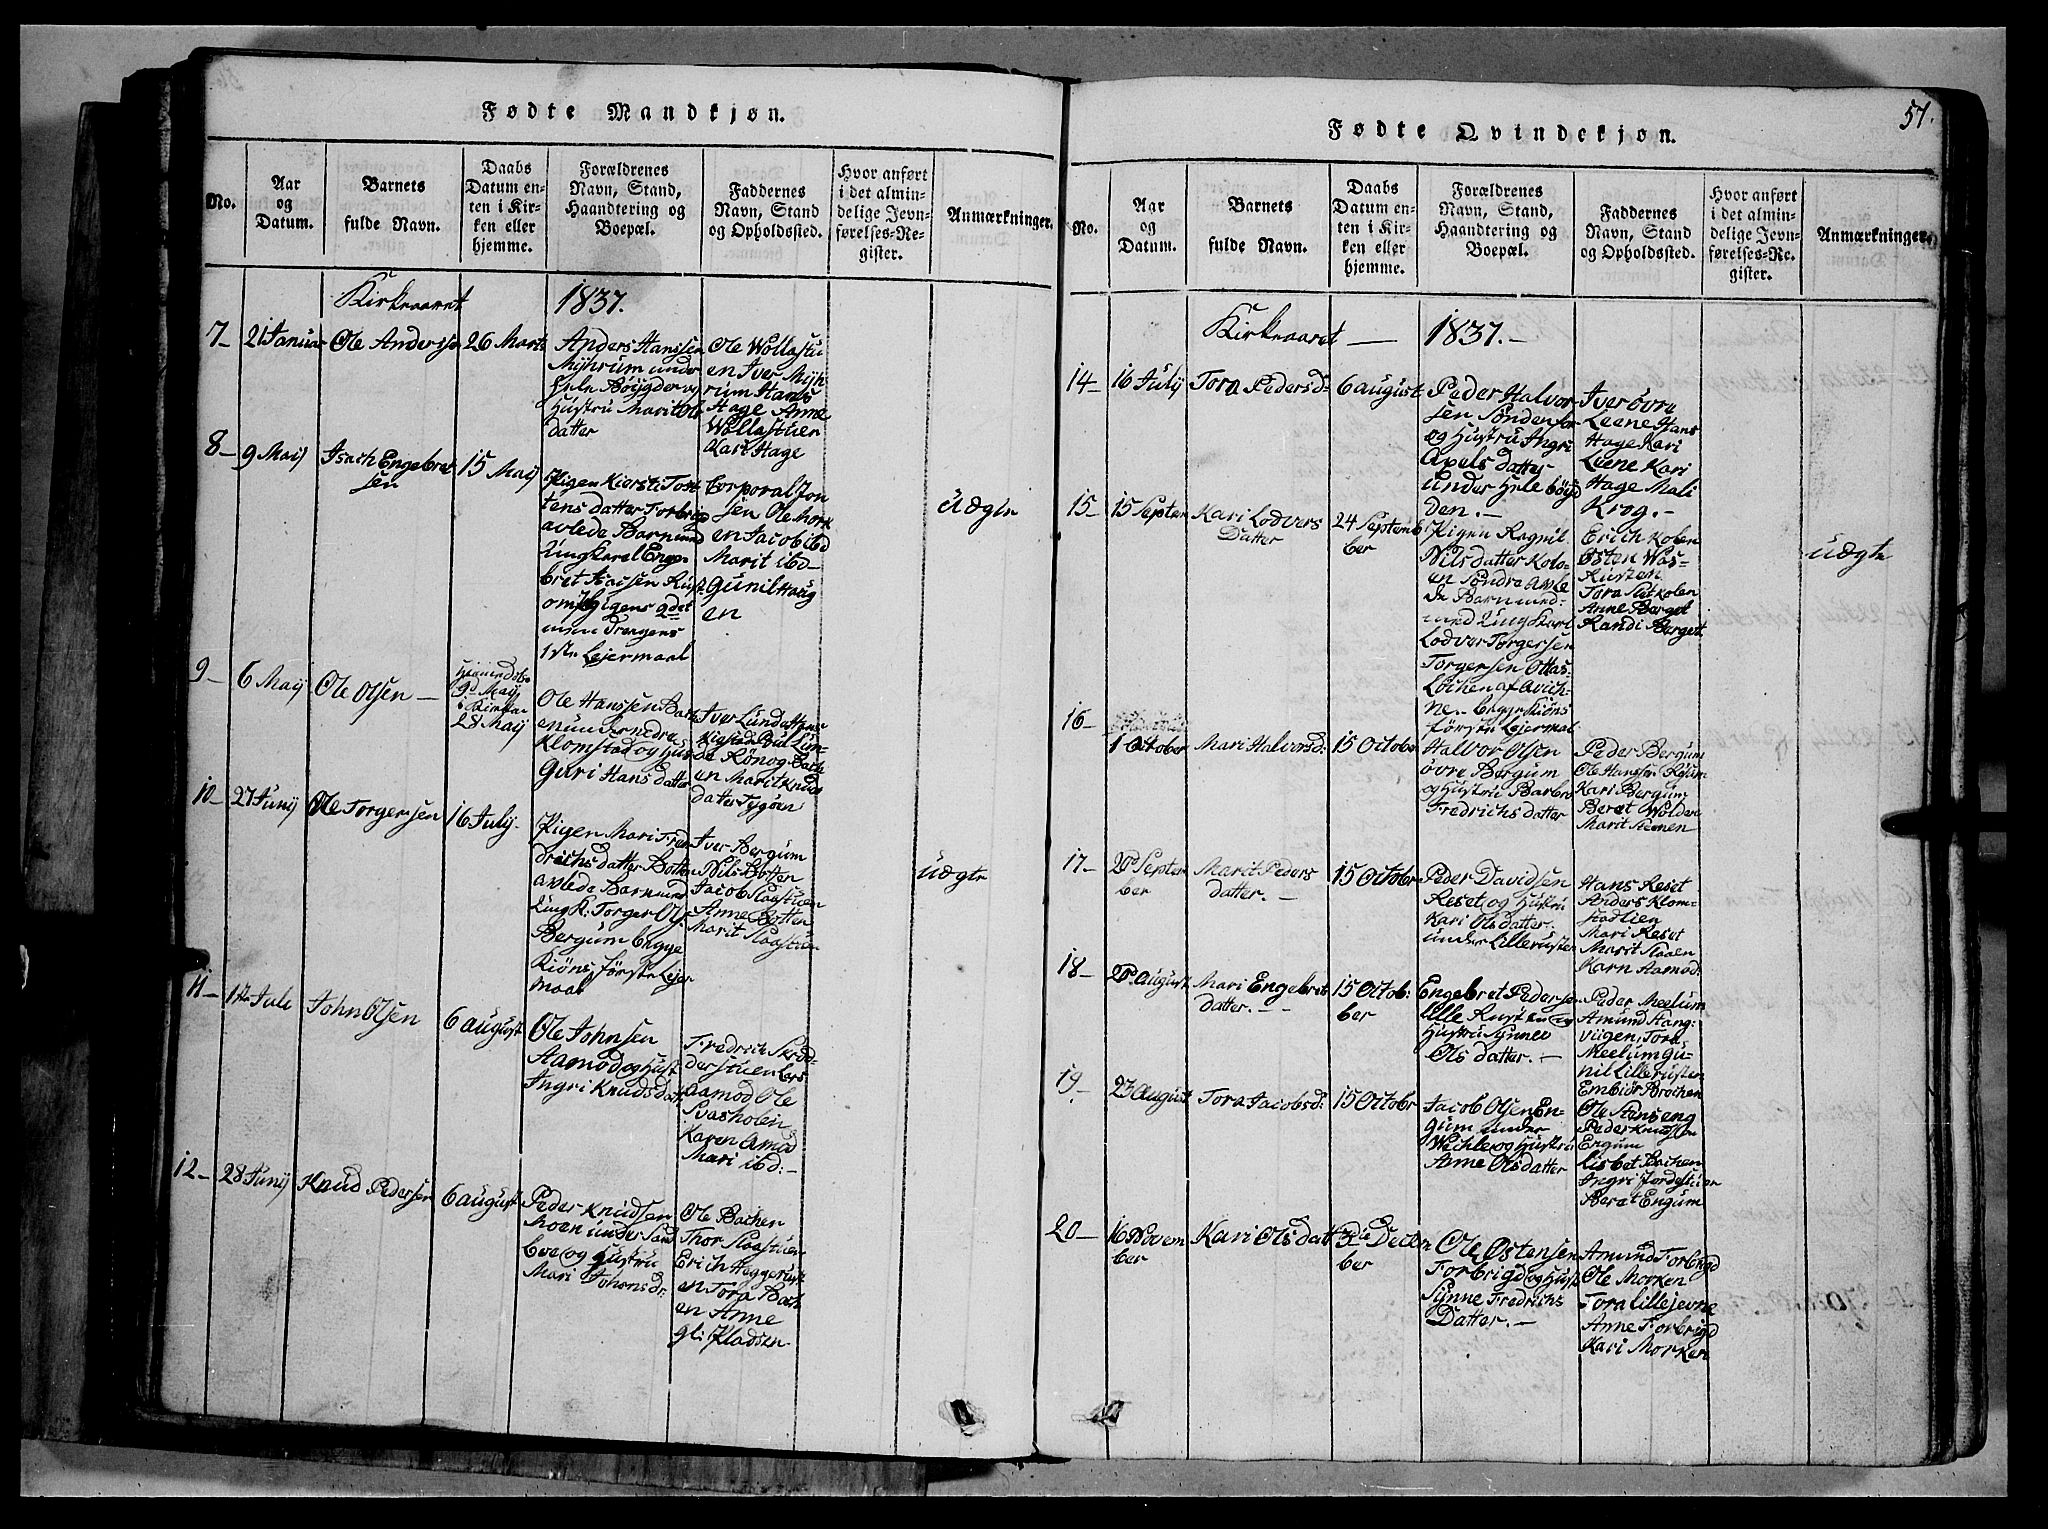 Fødte Mandkjøn.
No.
Aar
og
Datum.
Barnets
fulde Navn.
Daabs
Datum en-
ten i Kir-
ken eller
hjemme.
Forældrenes
Navn, Stand,
Haandtering og
Boepæl.
Faddernes
Navn, Stand
og Opholdssted.
Hvor anført
i det almin-
delige Jevn-
førelses-Re-
gister.
Anmærkninger.
Kirkeaaret 1837.
7-
21 Januar
Ole Andersen
26 Marts
Anders Hanssen
Myhrum under
Hele Bøygden og
Hustru Marit Ols
datter
Ole Wollastu
en Iver Myh
rum Hans
Hage Anne
Wollastuen
Kari Hage
8-
9 Maij
Isach Engebret
sen
15 Maij
Pigen Kiersti Tost
tens datter Forbrigd
avlede Barn med
Ung karl Enge
bret Isacsen Rust
om Pigens 2det
men Drengens
1ste Lejermaal
Corporal Jon
sen Ole Mork
en Jacob ibd
Marit ibd-
Gunil Haug
en
uægte
9-
6 Maij
Ole Olsen -
Hjemmedøbt
9de Maij
i Kirken
28 Maij
Ole Hanssen Bakk
en under nedre
Klomstad og Hus
Guri Hans datter
Iver Lund
Poul Lun-
de Kønog Bakk
en Marit Knuds
datter Tygøen
10-
27 Junij
Ole Torgersen
16 Julij.
Pigen Mari Fred
drichsdatter Botten
avlede Barn med
Ung K. Torger Ols:
Bergum begge
Kiøns første Lejer
maal
Iver Bergum
Nils Botten
Jacob Slaastuen
Anne Botten
Marit Slaastuen
uægte
11-
1ste Juli
John Olsen
6 august
Ole Johnsen
Aamod og Hust
Ingri Knudsdatt
Fredrich Skrød
derstuen Lars
aamod Ole
Svasholen
Karen Amod
Mari ibd:-
12-
28 Junij
Knud Pedersen
6 august
Peder Knudsen
Moen under Sand
boe og Hustru
Mari Johnsd:
Ole Bachen
Thor Slaastuen
Erich Heggerust
en Tora Bach
en Anne
gl: Pladsen
57.
Fødte Qvindekjøn.
No.
Aar
og
Datum.
Barnets
fulde Navn.
Daabs
Datum en-
ten i Kir-
ken eller
hjemme.
Forældrenes
Navn, Stand,
Haandtering og
Boepæl.
Faddernes
Navn, Stand
og Opholdssted.
Hvor anført
i det almin-
delige Jevn-
førelses-Re-
gister.
Anmærkninger.
Kirkeaaret - 1837.-
14-
16 Julij
Tora Pedersd:
6 august
Peder Halvor
sen Søndenfor
og Hustru Ingri
Axels datter
under Hele bøyd
den.-
Iver øvre
Leene Hans
Hage Kari
Leene Kari
Hage Mali
Krog.-
15-
15 Septem
Kari Lodvers
Datter
24 Septem
ber
Pigen Ragnil
Nils datter Kolo-
en Søndre avle
de Barn med
med Ung Karl
Lodver Torgersen
Torgersen Ottas-
Løchen af Qvich-
ne.. begge Kiøns
første Lejermal
Erich Kolen
Østen Was-
Rusten
Tora Sletkolen
Anne Berget
Randi Berget
uægte
16-
1 October
Mari Halvorsd:
15 October
Halvor Olsen
øvre Bergum
og Hustru Barbro
Fredrichs datter
Peder Bergum
Ole Hanssen Rysum
Kari Bergum
Beret Wolden
Marit Steenen
17-
20de Septem
ber
Marit Peders
datter.-
15 October
Peder Davidsen
Reset og Hustru
Kari Ols datter
under Lillerusten
Hans Reset
Anders Klom-
stadlien
Mari Reset
Marit Slaaen
Karn Aamod:
18-
20de august
Mari Engebret
datter.--
15 Octob:
ber
Engebret Pedersen
lille Rusten og
Hustru Synnev
Ols datter.-
Peder Meelum
Amund Stang-
viigen, Tora
Meelum Gu-
nil Lillerusten
Embiør Brochen
19.-
23 August
Tora Jacobsd:
15 October
Jacob Olsen En-
gum under
Wichle og Hustru
Anne Olsdatter
Ole Hans eng
Peder Knudsen
Engum
Lisbet Bachen
Ingri Jordestuen
Beret Engum
20-
16 Novem
ber
Kari Olsdatt
3de Decem
ber
Ole Østensen
Forbrigd og Hust
Synne Fredrichs
Datter.-
Amund Forbrigd
Ole Morken
Tora Lillejevne
Anne Forbrigd
Kari Morken